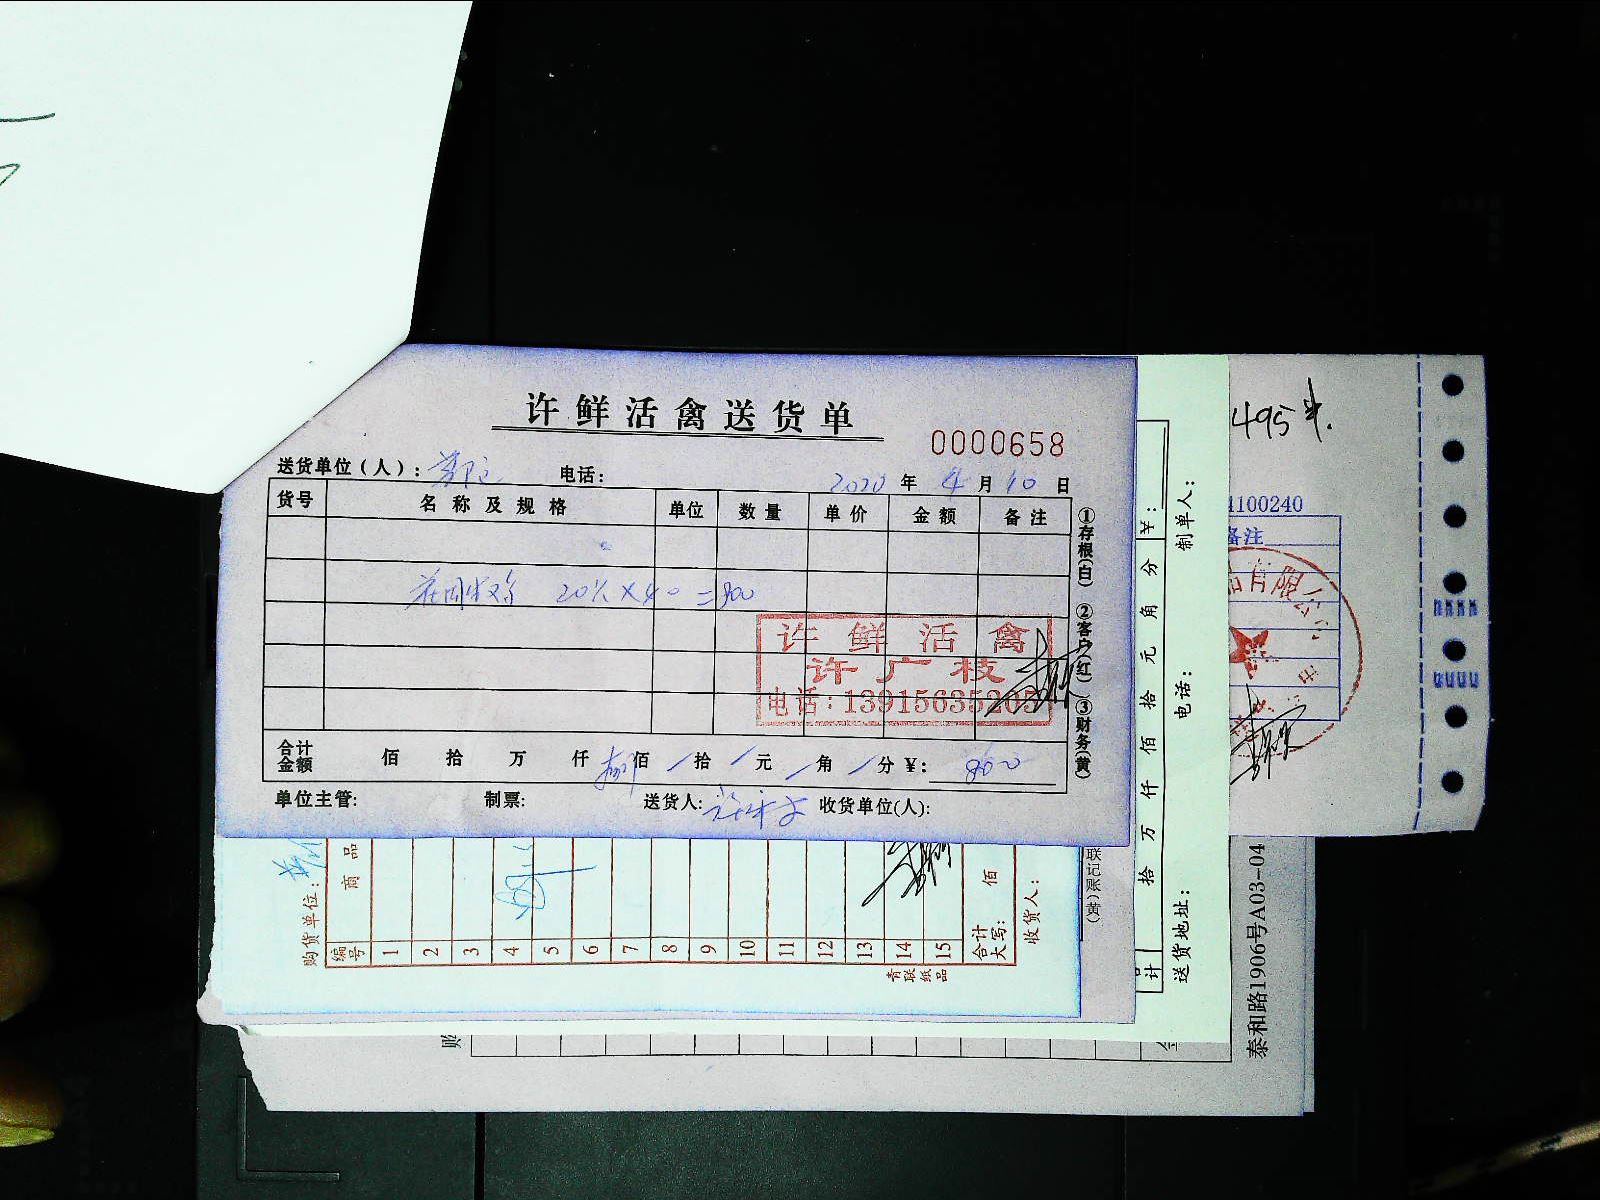 许鲜活禽送货单
0000658
送货单位(人): 电话: 2020 年 4 月 10 日
货号 名称及规格 单位 数量 单价 金额 备注
20 × 40 = 800
许鲜活禽
许广枝
电话:13915635205
合计金额 佰 拾 万 仟 捌佰 / 拾 / 元 / 角 / 分 ¥: 800
单位主管: 制票: 送货人: 收货单位(人):
①存根(白) ②客户(红) ③财务(黄)
购货单位:
编号 商品
1
2
3
4
5
6
7
8
9
10
11
12
13
14
15
合计大写: 佰
收货人:
青联纸品
联记账(黄)
计 拾万仟佰拾元角分 ¥:
送货地址: 电话: 制单人:
495
4100240
备注
品有限公司
泰和路1906号A03-04